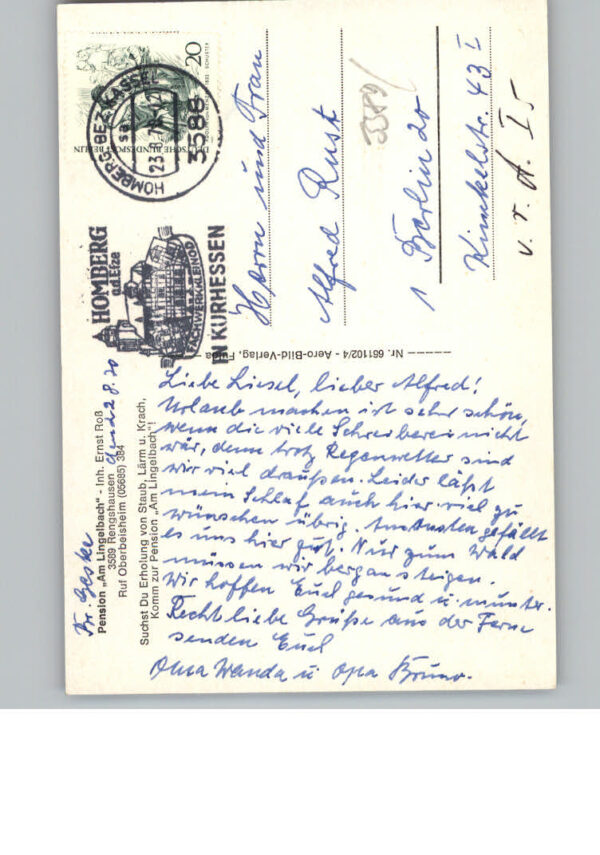 Fr. Geske
Pension „Am Lingelbach" · Inh. Ernst Roß
3589 Rengshausen
2.8.70
Ruf Oberbeisheim (05685) 384
Suchst Du Erholung von Staub, Lärm u. Krach,
Komm zur Pension „Am Lingelbach"!
Liebe Liesel, lieber Alfred!
Urlaub machen ist sehr schön,
wenn die viele Schreiberei nicht
wär, denn trotz Regenwetter sind
wir viel draußen. Leider läßt
mein Schlaf auch hier viel zu
wünschen übrig. Am besten gefällt
es uns hier gut. Nur zum Wald
müssen wir bergan steigen.
Wir hoffen Euch gesund u. munter.
Recht liebe Grüße aus der Ferne
senden Euch
Oma Wanda u. Opa Bruno.
Nr. 661102/4 - Aero-Bild-Verlag, Fulda
HOMBERG
a.d. Efze
FACHWERKKLEINOD
IN KURHESSEN
HOMBERG BEZ KASSEL
3588
20
DEUTSCHE BUNDESPOST BERLIN
SCHUSTER
Herrn und Frau
Alfred Rust
3389/
1 Berlin 20
Kinkelstr. 43 I
v. r. A. I 5